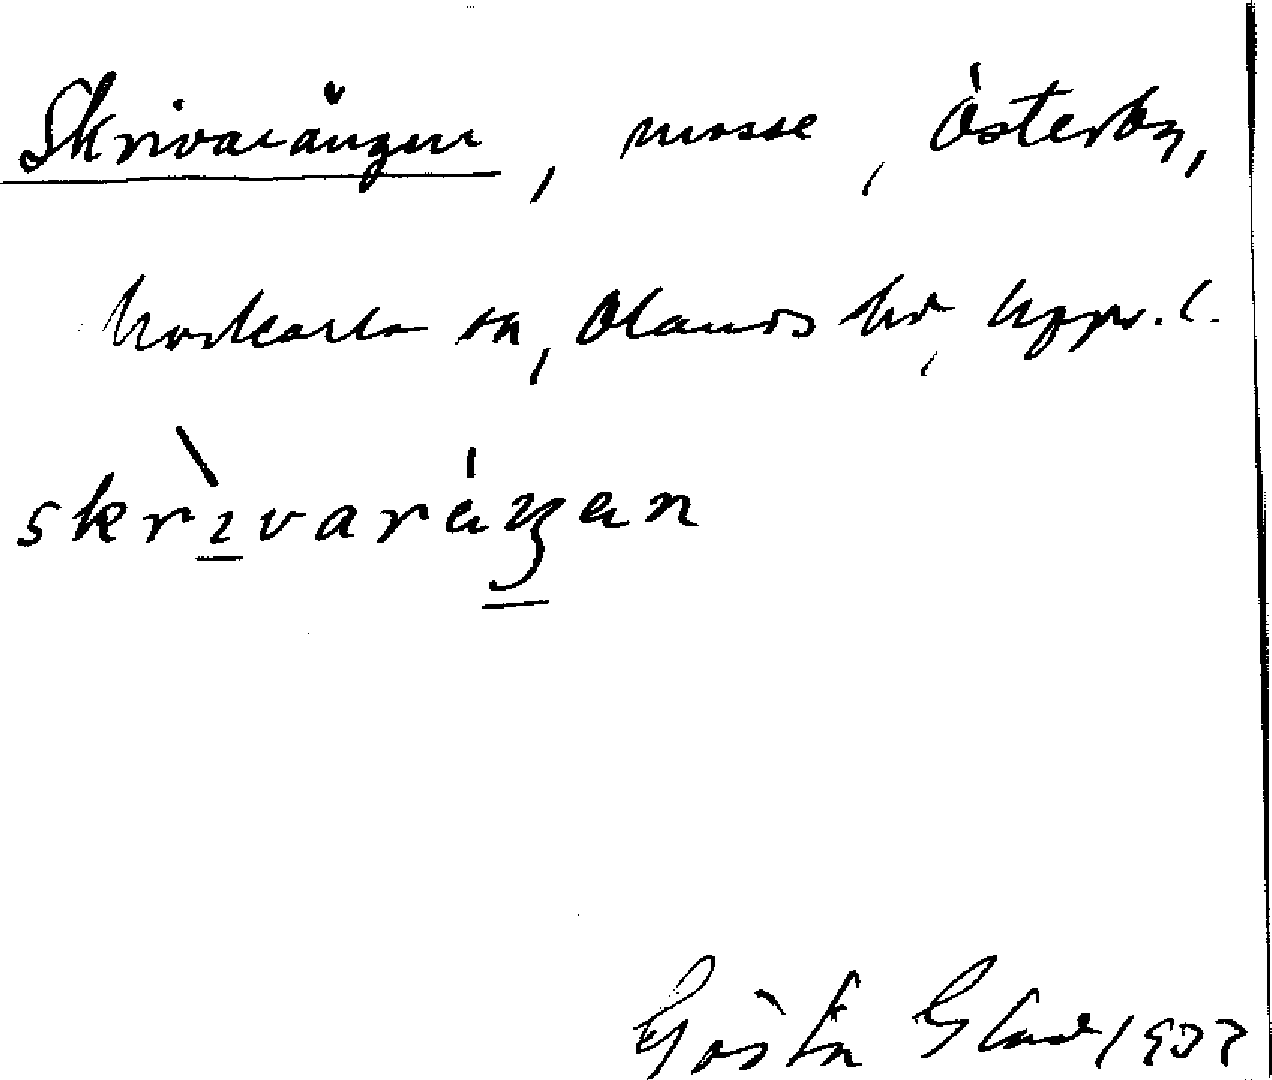 Skrivarängen, mosse, Österby,
Morkarla sn, Olands hd, Uppl.
skrìvaráŋen
Gösta Glad 1937